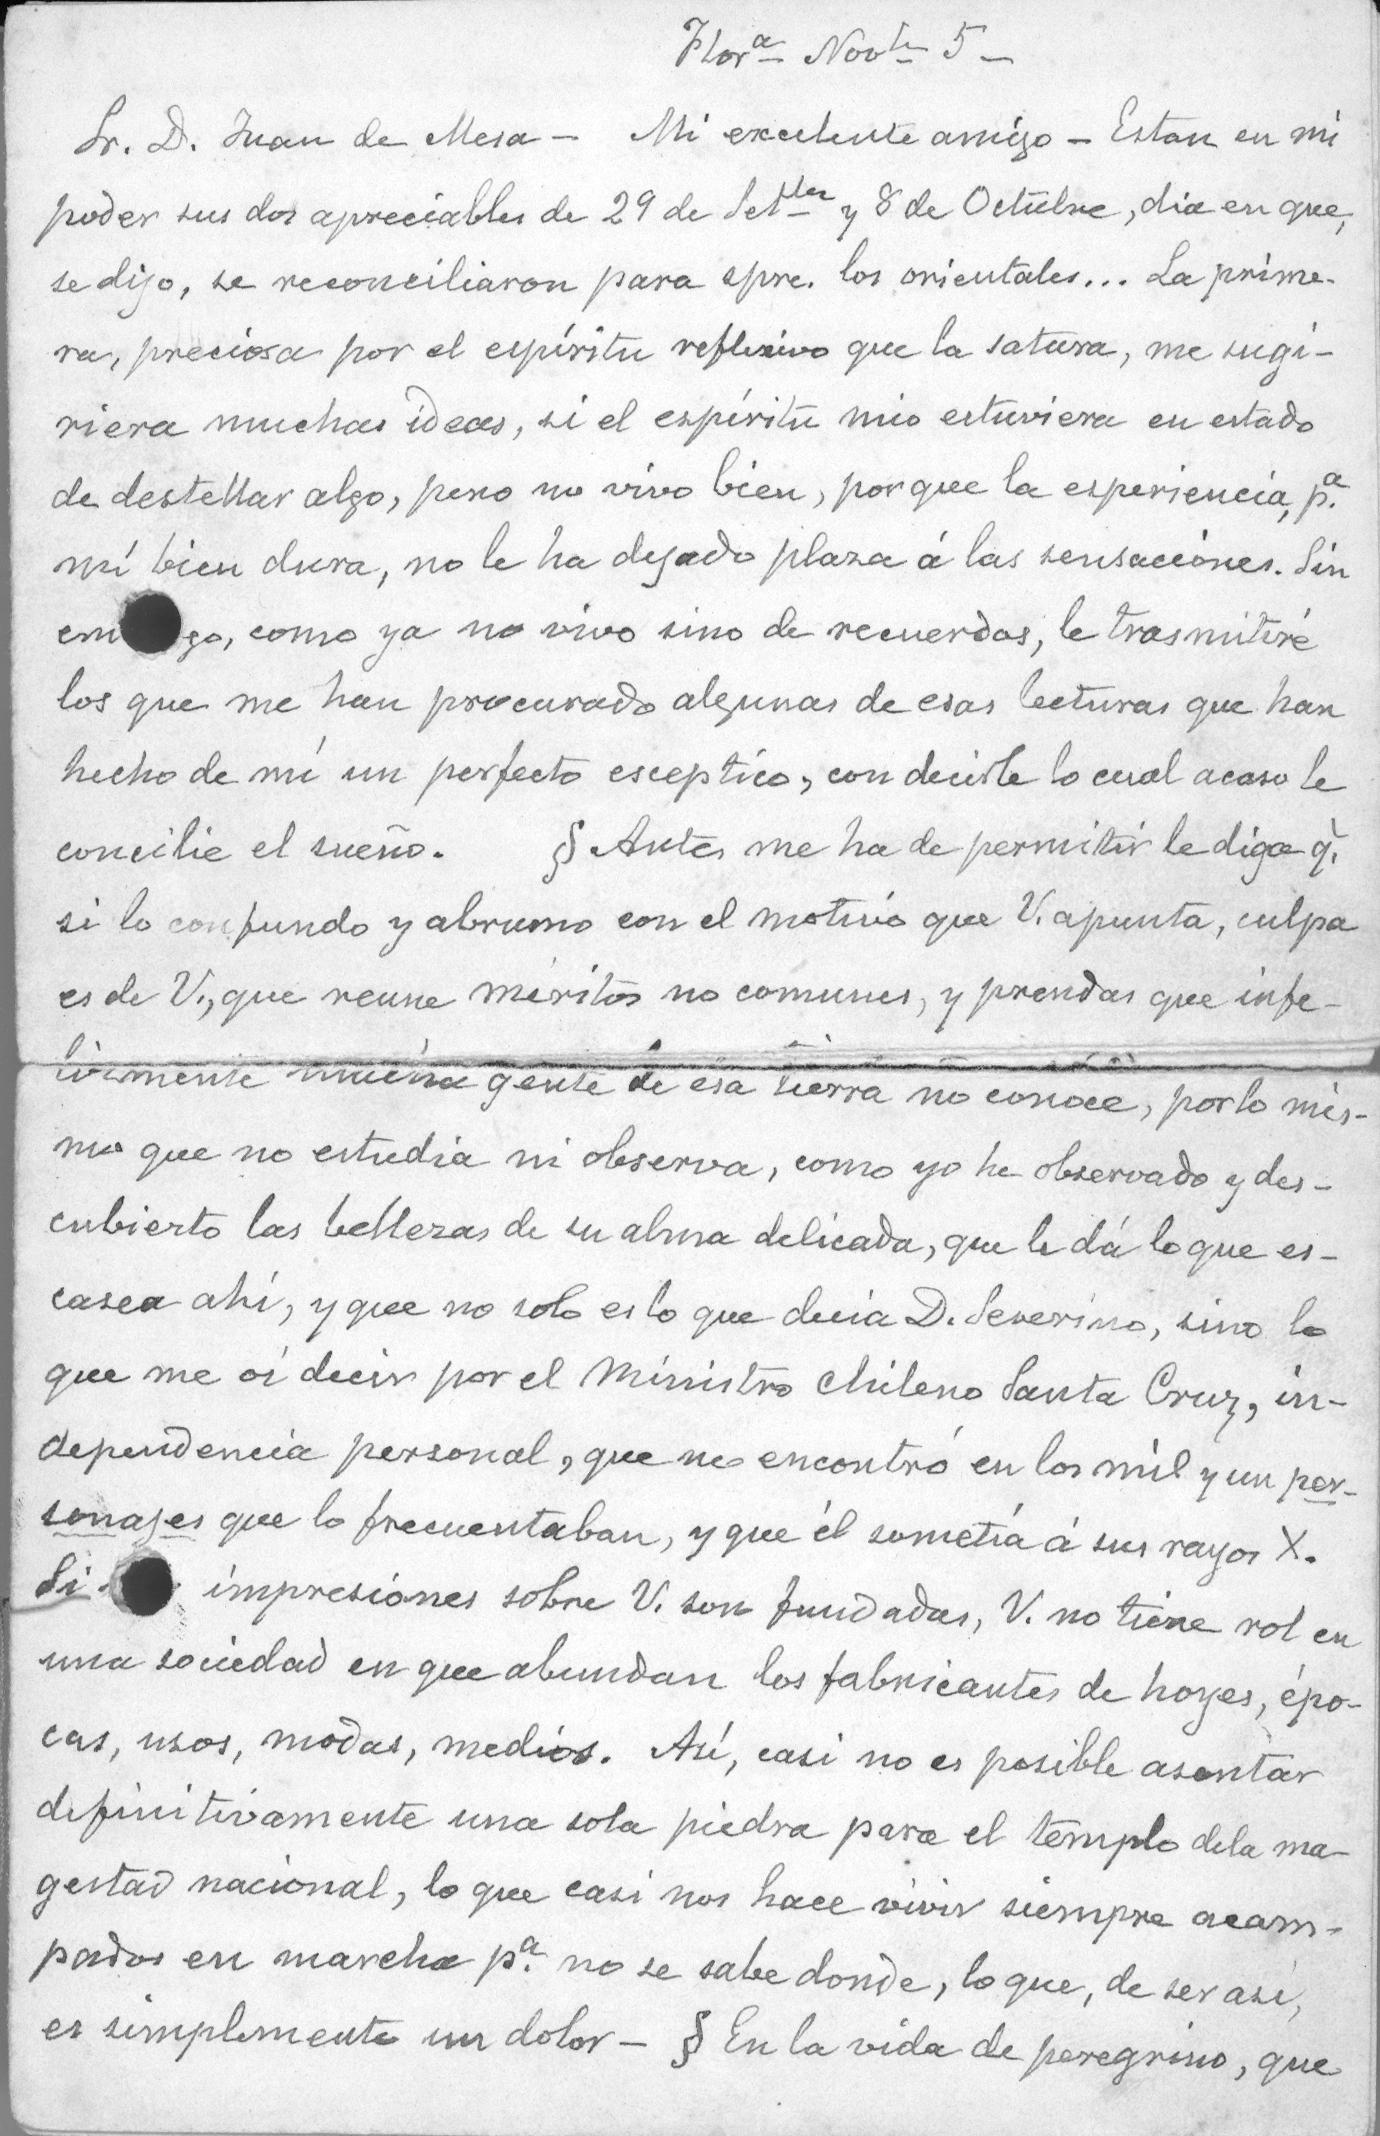 Flor.a Novte 5 —
Sr. D. Juan de Mesa — Mi excelente amigo — Estan en mi
poder sus dos apreciables de 29 de Setbre y 8 de Octubre, dia en que,
se dijo, se reconciliaron para spre. los orientales... La prime-
ra, preciosa por el espíritu reflexivo que la satura, me sugi-
riera muchas ideas, si el espíritu mio estuviera en estado
de destellar algo, pero no vivo bien, porque la esperiencia, p.a
mí bien dura, no le ha dejado plaza á las sensaciones. Sin
em go, como ya no vivo sino de recuerdos, le trasmitiré
los que me han procurado algunas de esas lecturas que han
hecho de mí un perfecto esceptico, con decirle lo cual acaso le
concilie el sueño. § Antes me ha de permitir le diga q.
si lo confundo y abrumo con el motivo que V. apunta, culpa
es de V., que reune méritos no comunes, y prendas que infe-
lizmente mucha gente de esa tierra no conoce, por lo mis-
mo que no estudia ni observa, como yo he observado y des-
cubierto las bellezas de su alma delicada, que le dá lo que es-
casea ahí, y que no solo es lo que decia D. Severino, sino lo
que me oí decir por el Ministro chileno Santa Cruz, in-
dependencia personal, que no encontró en los mil y un per-
sonajes que lo frecuentaban, y que él sometía á sus rayos X.
Si impresiones sobre V. son fundadas, V. no tiene rol en
una sociedad en que abundan los fabricantes de hoyes, épo-
cas, usos, modas, medios. Así, casi no es posible asentar
definitivamente una sola piedra para el templo dela ma-
gestad nacional, lo que casi nos hace vivir siempre acam-
pados en marcha p.a no se sabe donde, lo que, de ser asi,
es simplemente un dolor — § En la vida de peregrino, que